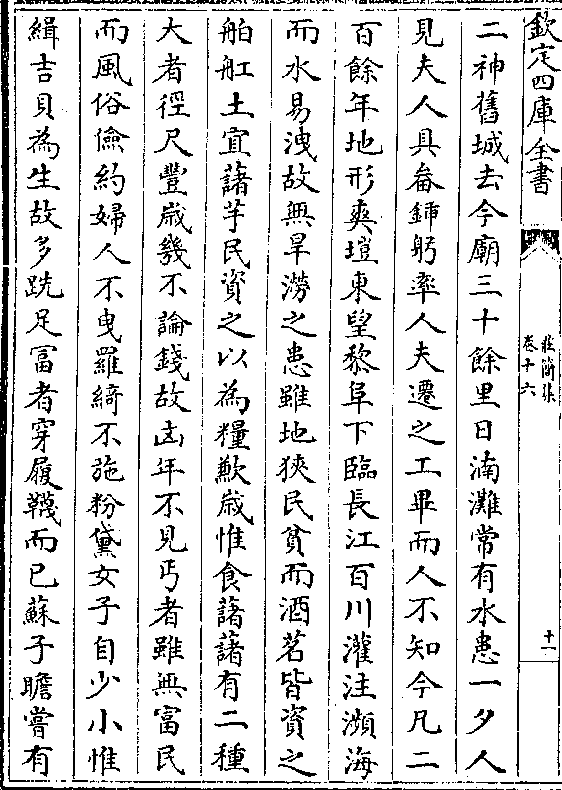 欽定四庫全書
莊簡集
卷十六
十一
二神舊城去今廟三十餘里曰湳灘常有水患一夕人
見夫人具畚鍤躬率人夫遷之工畢而人不知今凡二
百餘年地形爽塏東望黎阜下臨長江百川灌注瀕海
而水易洩故無旱澇之患雖地狹民貧而酒茗皆資之
舶舡土宜藷芋民資之以為糧歉歲惟食藷藷有二種
大者徑尺豐歲幾不論錢故凶年不見丐者雖無富民
而風俗儉約婦人不曳羅綺不施粉黛女子自少小惟
緝吉貝為生故多跣足富者穿履韈而已蘇子瞻嘗有